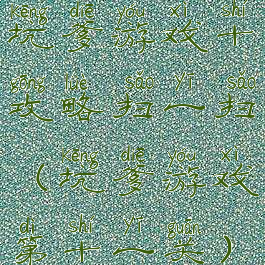 kēng diē yóu xì shí
坑爹游戏十
gōng lüè sǎo yī sǎo
攻略扫一扫
kēng diē yóu xì
(坑爹游戏
dì shí yī guān
第十一关)